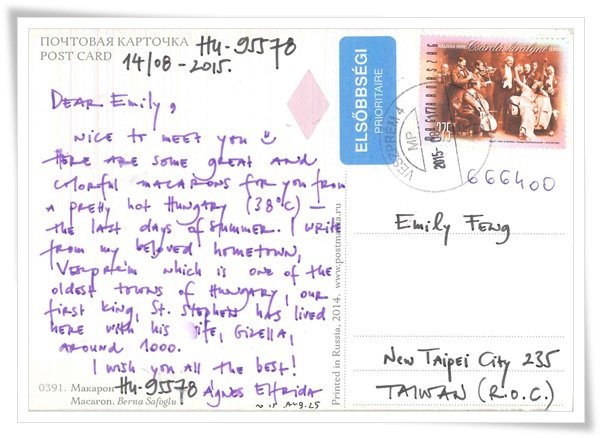 ПОЧТОВАЯ КАРТОЧКА
POST CARD
HU-95578
14/08-2015.
DEAR Emily,
NICE to meet you
HERE ARE SOME GREAT AND
COLORFUL MACARONS FOR YOU FROM
A PRETTY HOT HUNGARY (38°C) –
THE LAST DAYS OF SUMMER. I WRITE
FROM MY BELOVED HOMETOWN,
VESZPRÉM WHICH IS ONE OF THE
OLDEST TOWNS OF HUNGARY, OUR
FIRST KING, ST. STEPHEN HAS LIVED
HERE WITH HIS WIFE, GIZELLA,
AROUND 1000.
I WISH YOU ALL THE BEST!
HU-95578 Ágnes Elfrida
0391. Макарон
Macaron. Berna Safoglu
2015 Aug.25
Printed in Russia, 2014. www.postmarka.ru
ELSŐBBSÉGI
PRIORITAIRE
KÁLMÁN IMRE
Csárdáskirálynő
MAGYARORSZÁG
325
VESZPRÉM 4
MP
2015
666400
Emily Feng
New Taipei City 235
TAIWAN (R.O.C.)